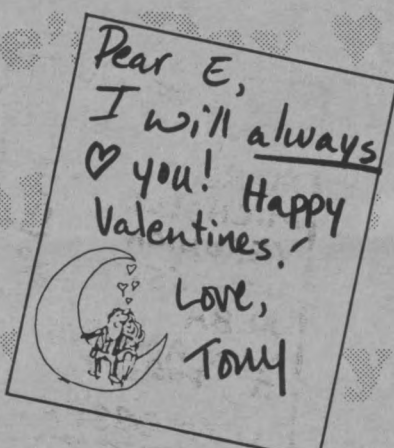 Dear E,
I will always
♡ you! Happy
Valentines!
Love,
Tony